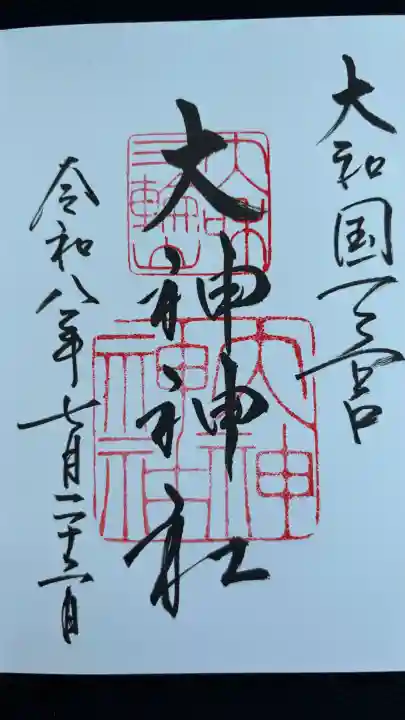 大和国一之宮
大神神社
令和八年七月二十二日
三輪
大神神社